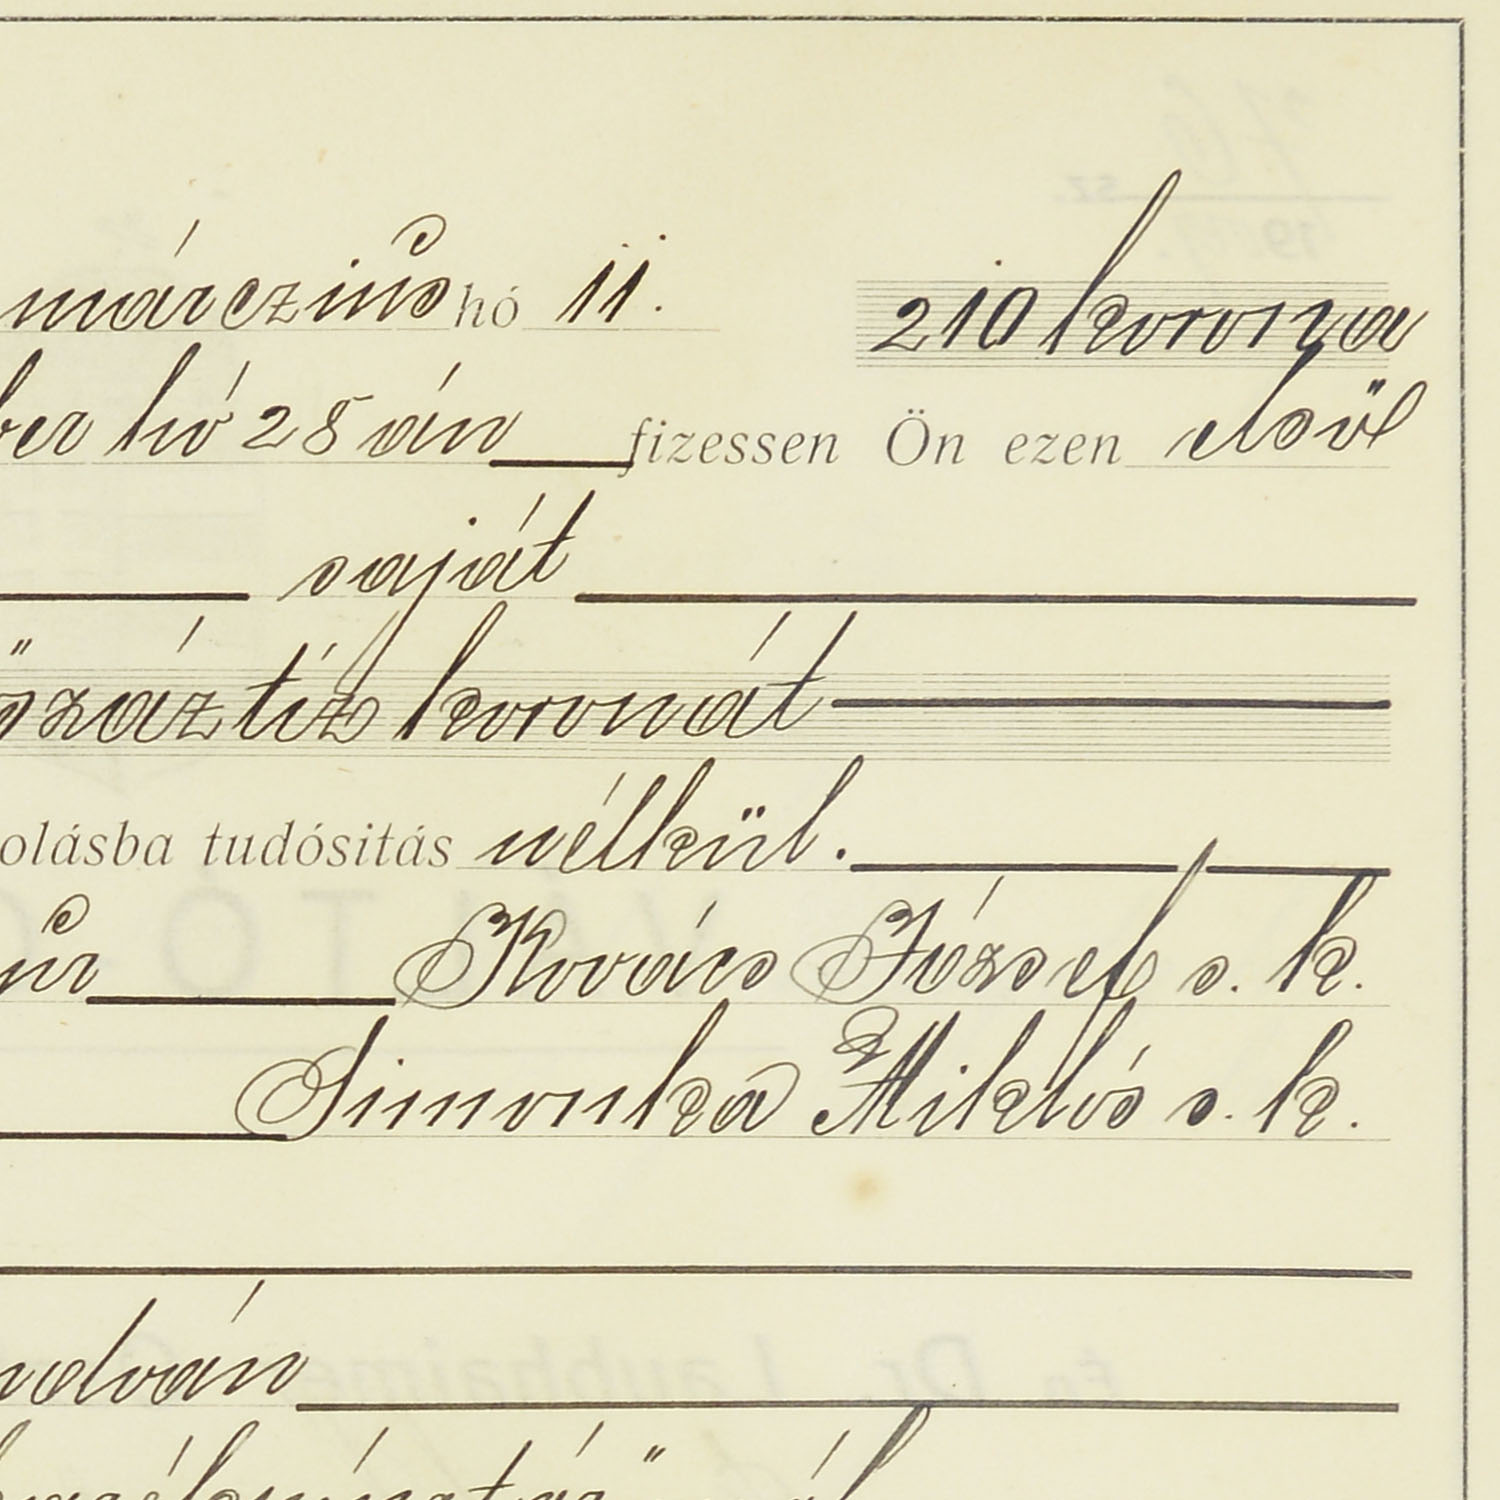 márczius hó 11. 210 korona
ber hó 28 án fizessen Ön ezen elsőt
saját
őszáz tiz koronát
olásba tudósitás nélkül.
úr Kovács József s. k.
Simonka Miklós s. k.